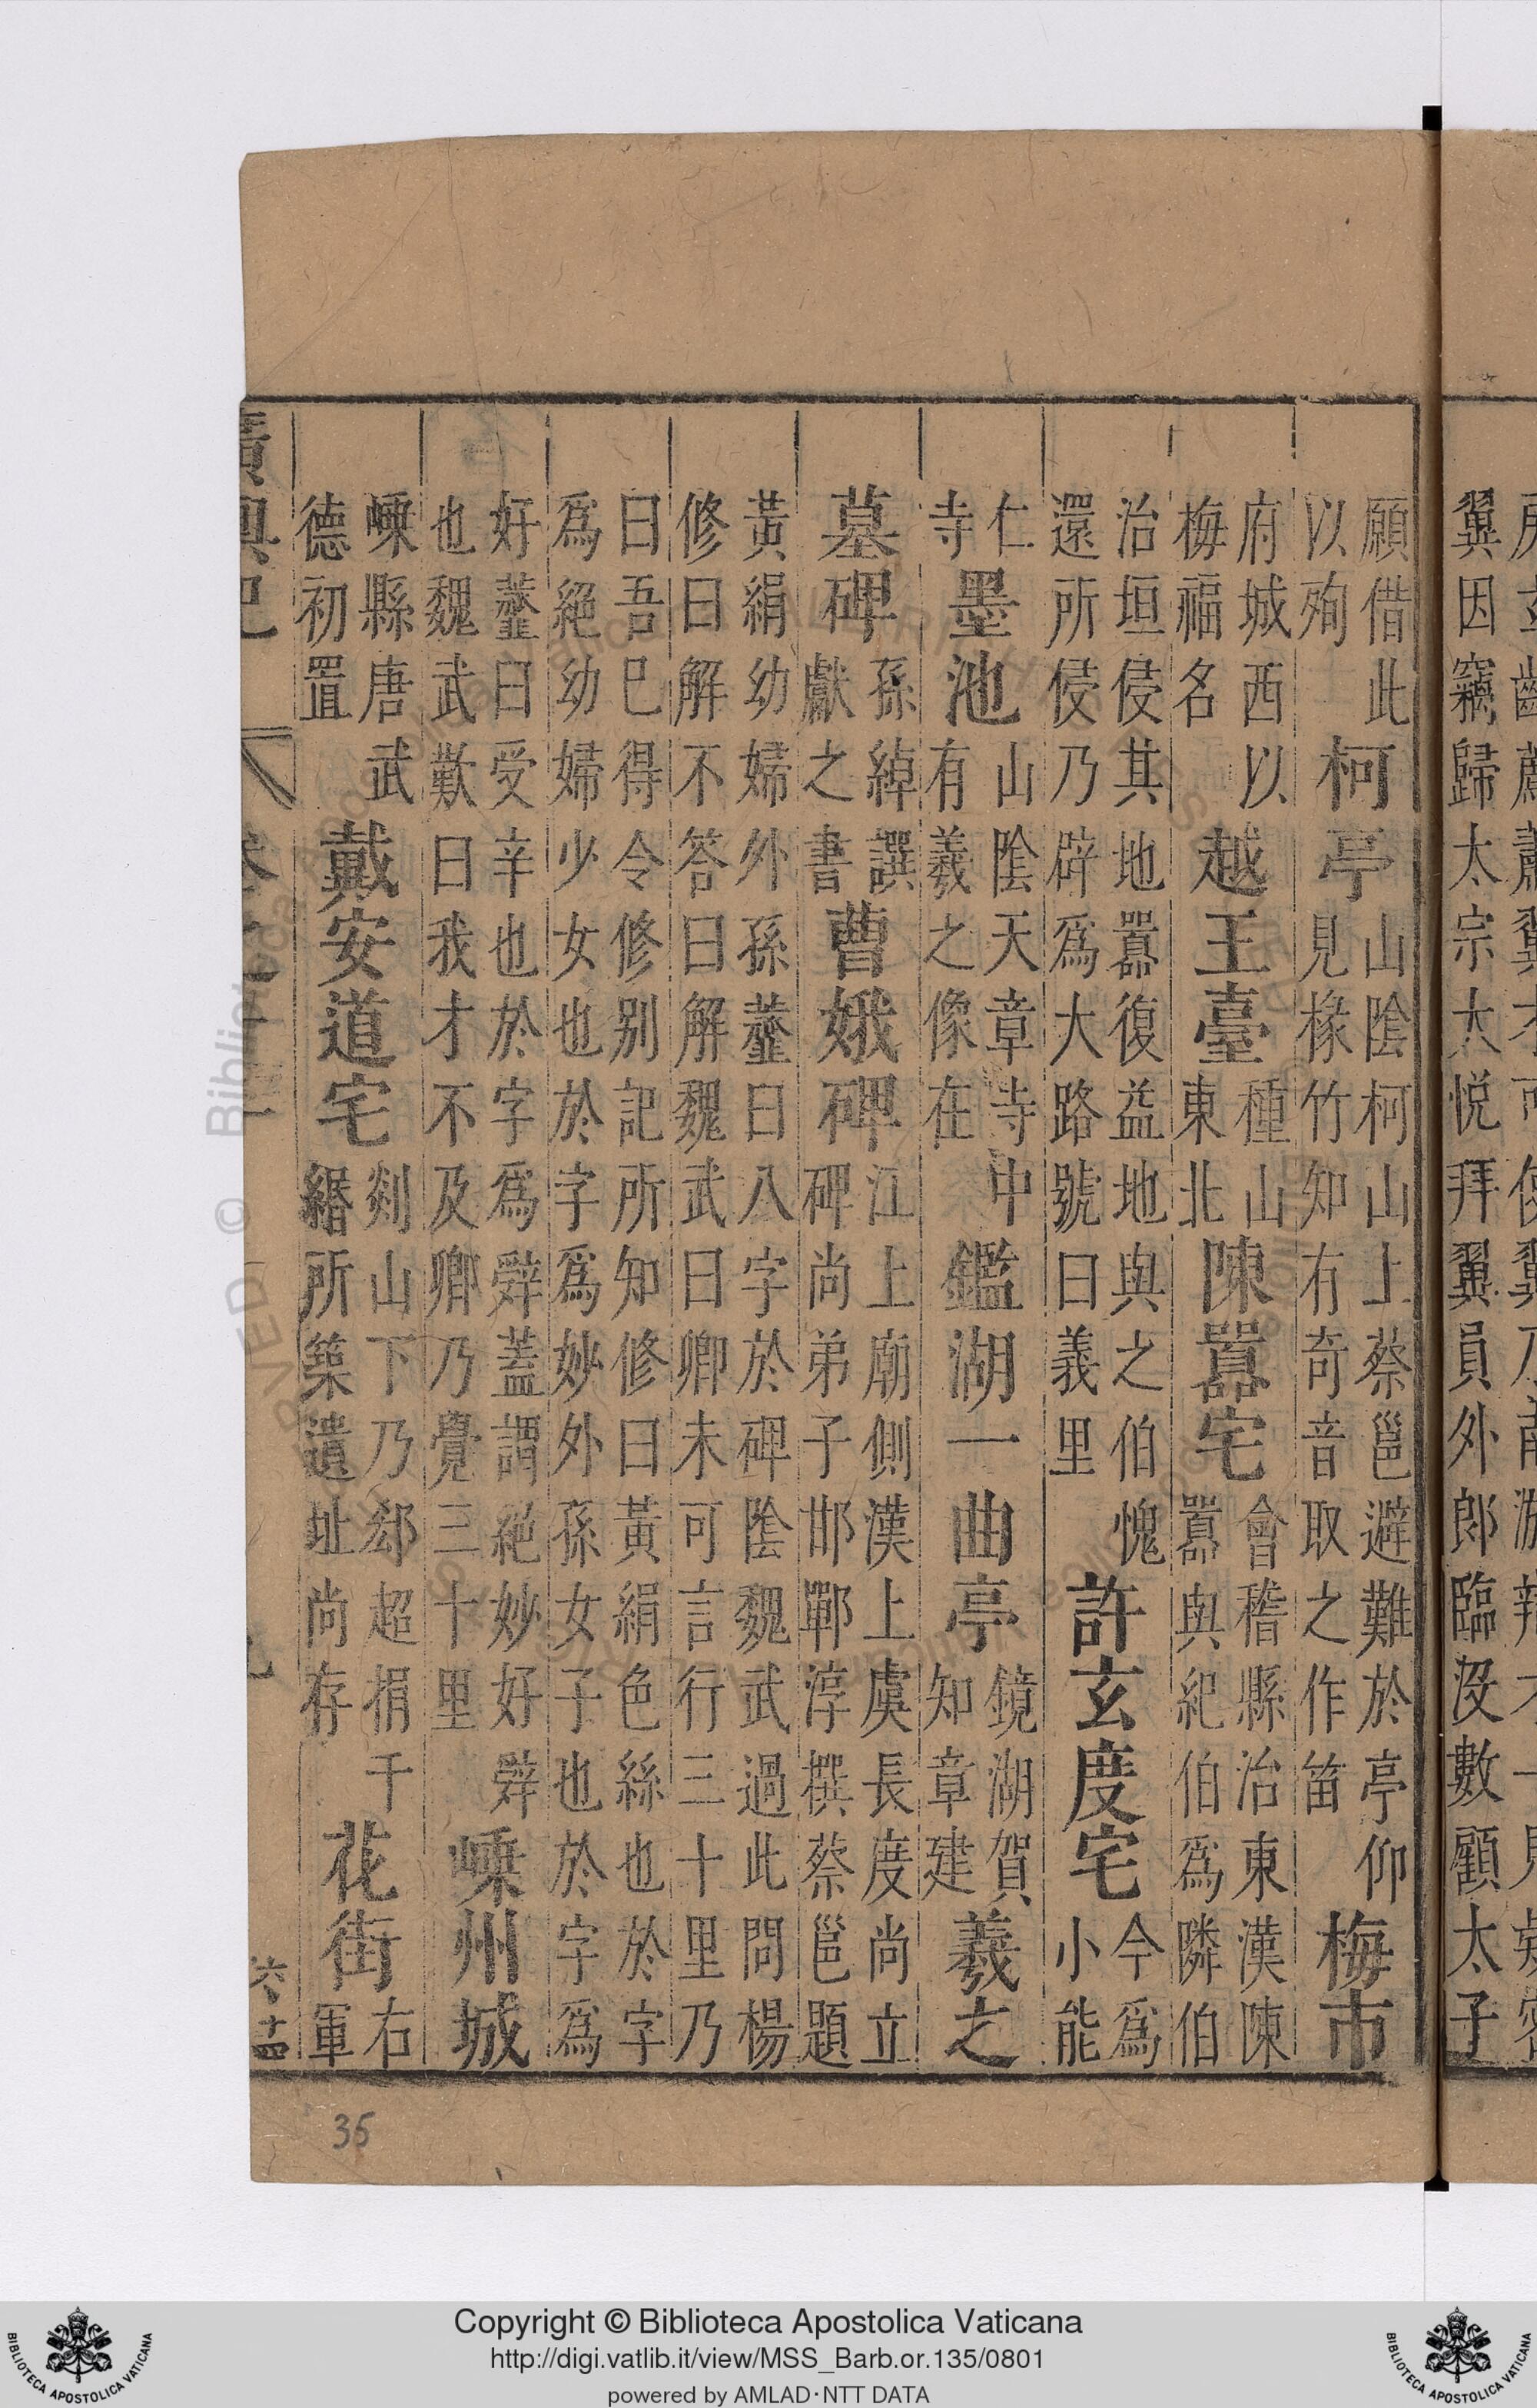 翼因竊歸太宗大悅拜翼員外郎臨沒數顧太子
願借此以殉柯亭山陰柯山上蔡邕避難於亭仰見椽竹知有奇音取之作笛梅市
府城西以梅福名越王臺種山東北陳囂宅會稽縣治東漢陳囂與紀伯爲隣伯
治垣侵其地囂復益地與之伯愧還所侵乃辟爲大路號曰義里許玄度宅今爲小能
仁寺墨池山陰天章寺中有羲之像在鑑湖一曲亭鏡湖賀知章建羲之
墓碑孫綽譔獻之書曹娥碑江上廟側漢上虞長度尚立碑尚弟子邯鄲淳撰蔡邕題
黃絹幼婦外孫虀曰八字於碑陰魏武過此問楊
修曰解不答曰解魏武曰卿未可言行三十里乃
曰吾巳得令修别記所知修曰黃絹色絲也於字
爲絕幼婦少女也於字爲妙外孫女子也於字爲
好虀曰受辛也於字爲辤蓋謂絕妙好辤也魏武歎曰我才不及卿乃覺三十里嵊州城
嵊縣唐武德初置戴安道宅剡山下乃郄超捐千緡所築遺址尚存花街右軍
六十四
35
Copyright © Biblioteca Apostolica Vaticana
http://digi.vatlib.it/view/MSS_Barb.or.135/0801
powered by AMLAD·NTT DATA